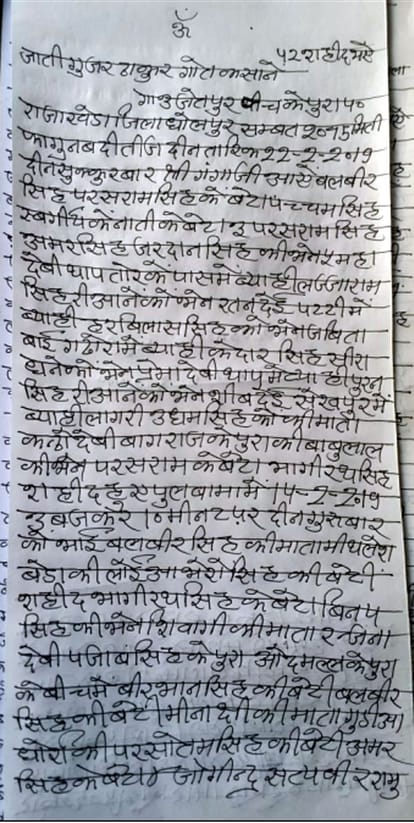 ॐ
५२ शहीद भऐ
जाती गुजर ठाकुर गोत कसाने
गाउ जेतपुर बीचकेपुरा प०
राजाखेडा जिला धोलपुर सम्बत २०७५ मिती
फागुन बदी तीज दीन तारिक २२-२-२०१९
दीन सुक्कुरबार श्री गंगाजी आऐ बलबीर
सिंह परसराम सिंह के बेटा पच्चम सिंह
स्बर्गीय के नाती के बेटा ३ परसराम सिंह
अमर सिंह जरदान सिंह की भेन ५ महा
देबी थाप तोर के पास मे ब्याही लज्जाराम
सिंह रीआने को भेन रतन देई पट्टी में
ब्याही हरबिलास सिंह को भेन जबिता
बाई गढीरामे ब्याही केदार सिंह सीरा
धने को भेन प्रेमा देबी थापु मे ब्याही पुरन
सिंह रीआने को भेन शीबदेई सेखपुर में
ब्याही लागरी उधम सिंह को की माता
कलादेबी बागराज के पुरा की बाबुलाल
की भेन परसराम के बेटा भागीरथ सिंह
शहीद हुऐ पुलबामा में १४-२-२०१९
३ बजकर १० मीनट पर दीन गुरुबार
को भाई बलबीर सिंह की माता मीथलेश
बेडा की लोईआ भेरो सिंह की बेटी
शहीद भागीरथ सिंह के बेटा बिनय
सिंह की भेन शिबागी की माता रन्जना
देबी पजाब सिंह के पुरा ओदमल्ल के पुरा
के बीच में बीरभान सिंह की बेटी बलबीर
सिंह की बेटी मीनाक्षी की माता गुडीआ
धोरा की परसोतम सिंह की बेटी अमर
सिंह के बेटा जोगीन्द्र